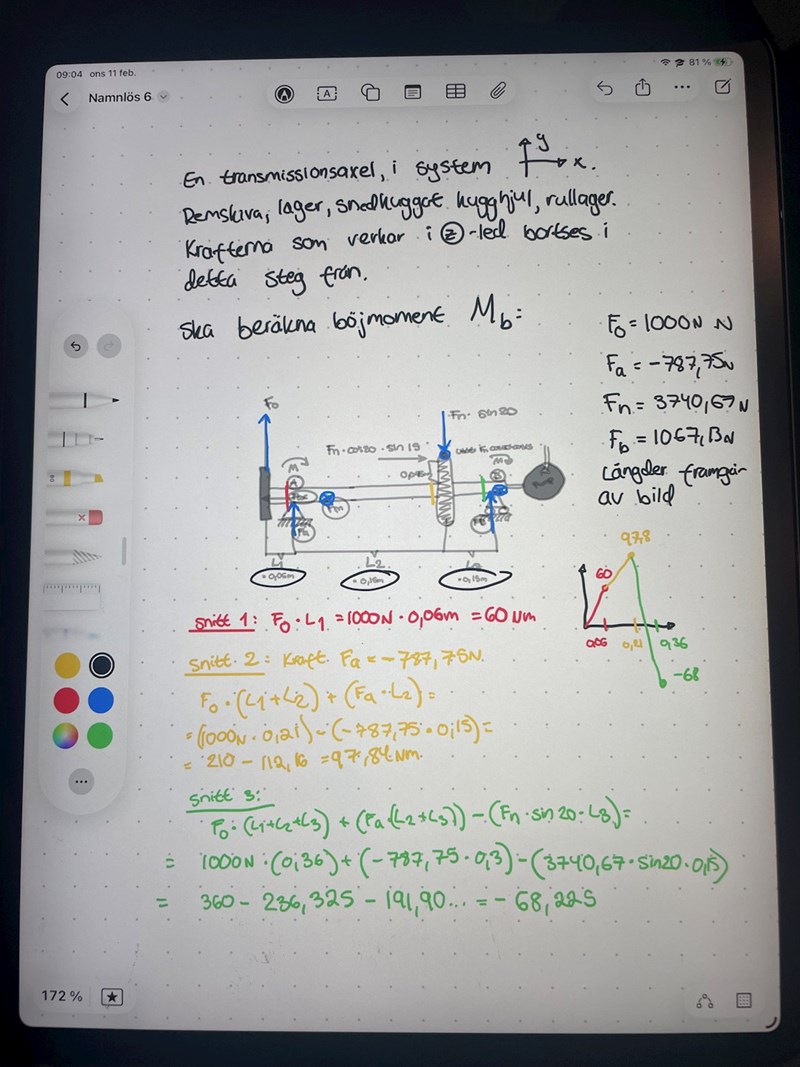 09:04 ons 11 feb.
81 %
Namnlös 6
En transmissionsaxel, i system y x.
Remskiva, lager, snedkugget kugghjul, rullager.
Krafterna som verkar i z-led bortses i
detta steg från.
Ska beräkna böjmoment Mb:
F₀ = 1000N N
Fa = -787,75N
Fn = 3740,67N
Fb = 1067,13N
Längder framgår
av bild
F₀
Fn · sin20
Fn·cos20 · sin 15
M
A
Fn
Fa
B
Pump
L1
= 0,06m
L2
= 0,15m
L3
= 0,15m
97,8
60
0,06
0,21
0,36
-68
Snitt 1: F₀ · L1 = 1000N · 0,06m = 60 Nm
Snitt 2: Kraft Fa = -787,75N.
F₀ · (L1+L2) + (Fa · L2) =
= (1000N · 0,21) - (-787,75 · 0,15) =
= 210 - 112,16 = 97,84Nm.
Snitt 3:
F₀ · (L1+L2+L3) + (Fa · (L2+L3)) - (Fn · sin20 · L3) =
= 1000N · (0,36) + (-787,75 · 0,3) - (3740,67 · sin20 · 0,15)
= 360 - 236,325 - 191,90... = - 68,225
172 %